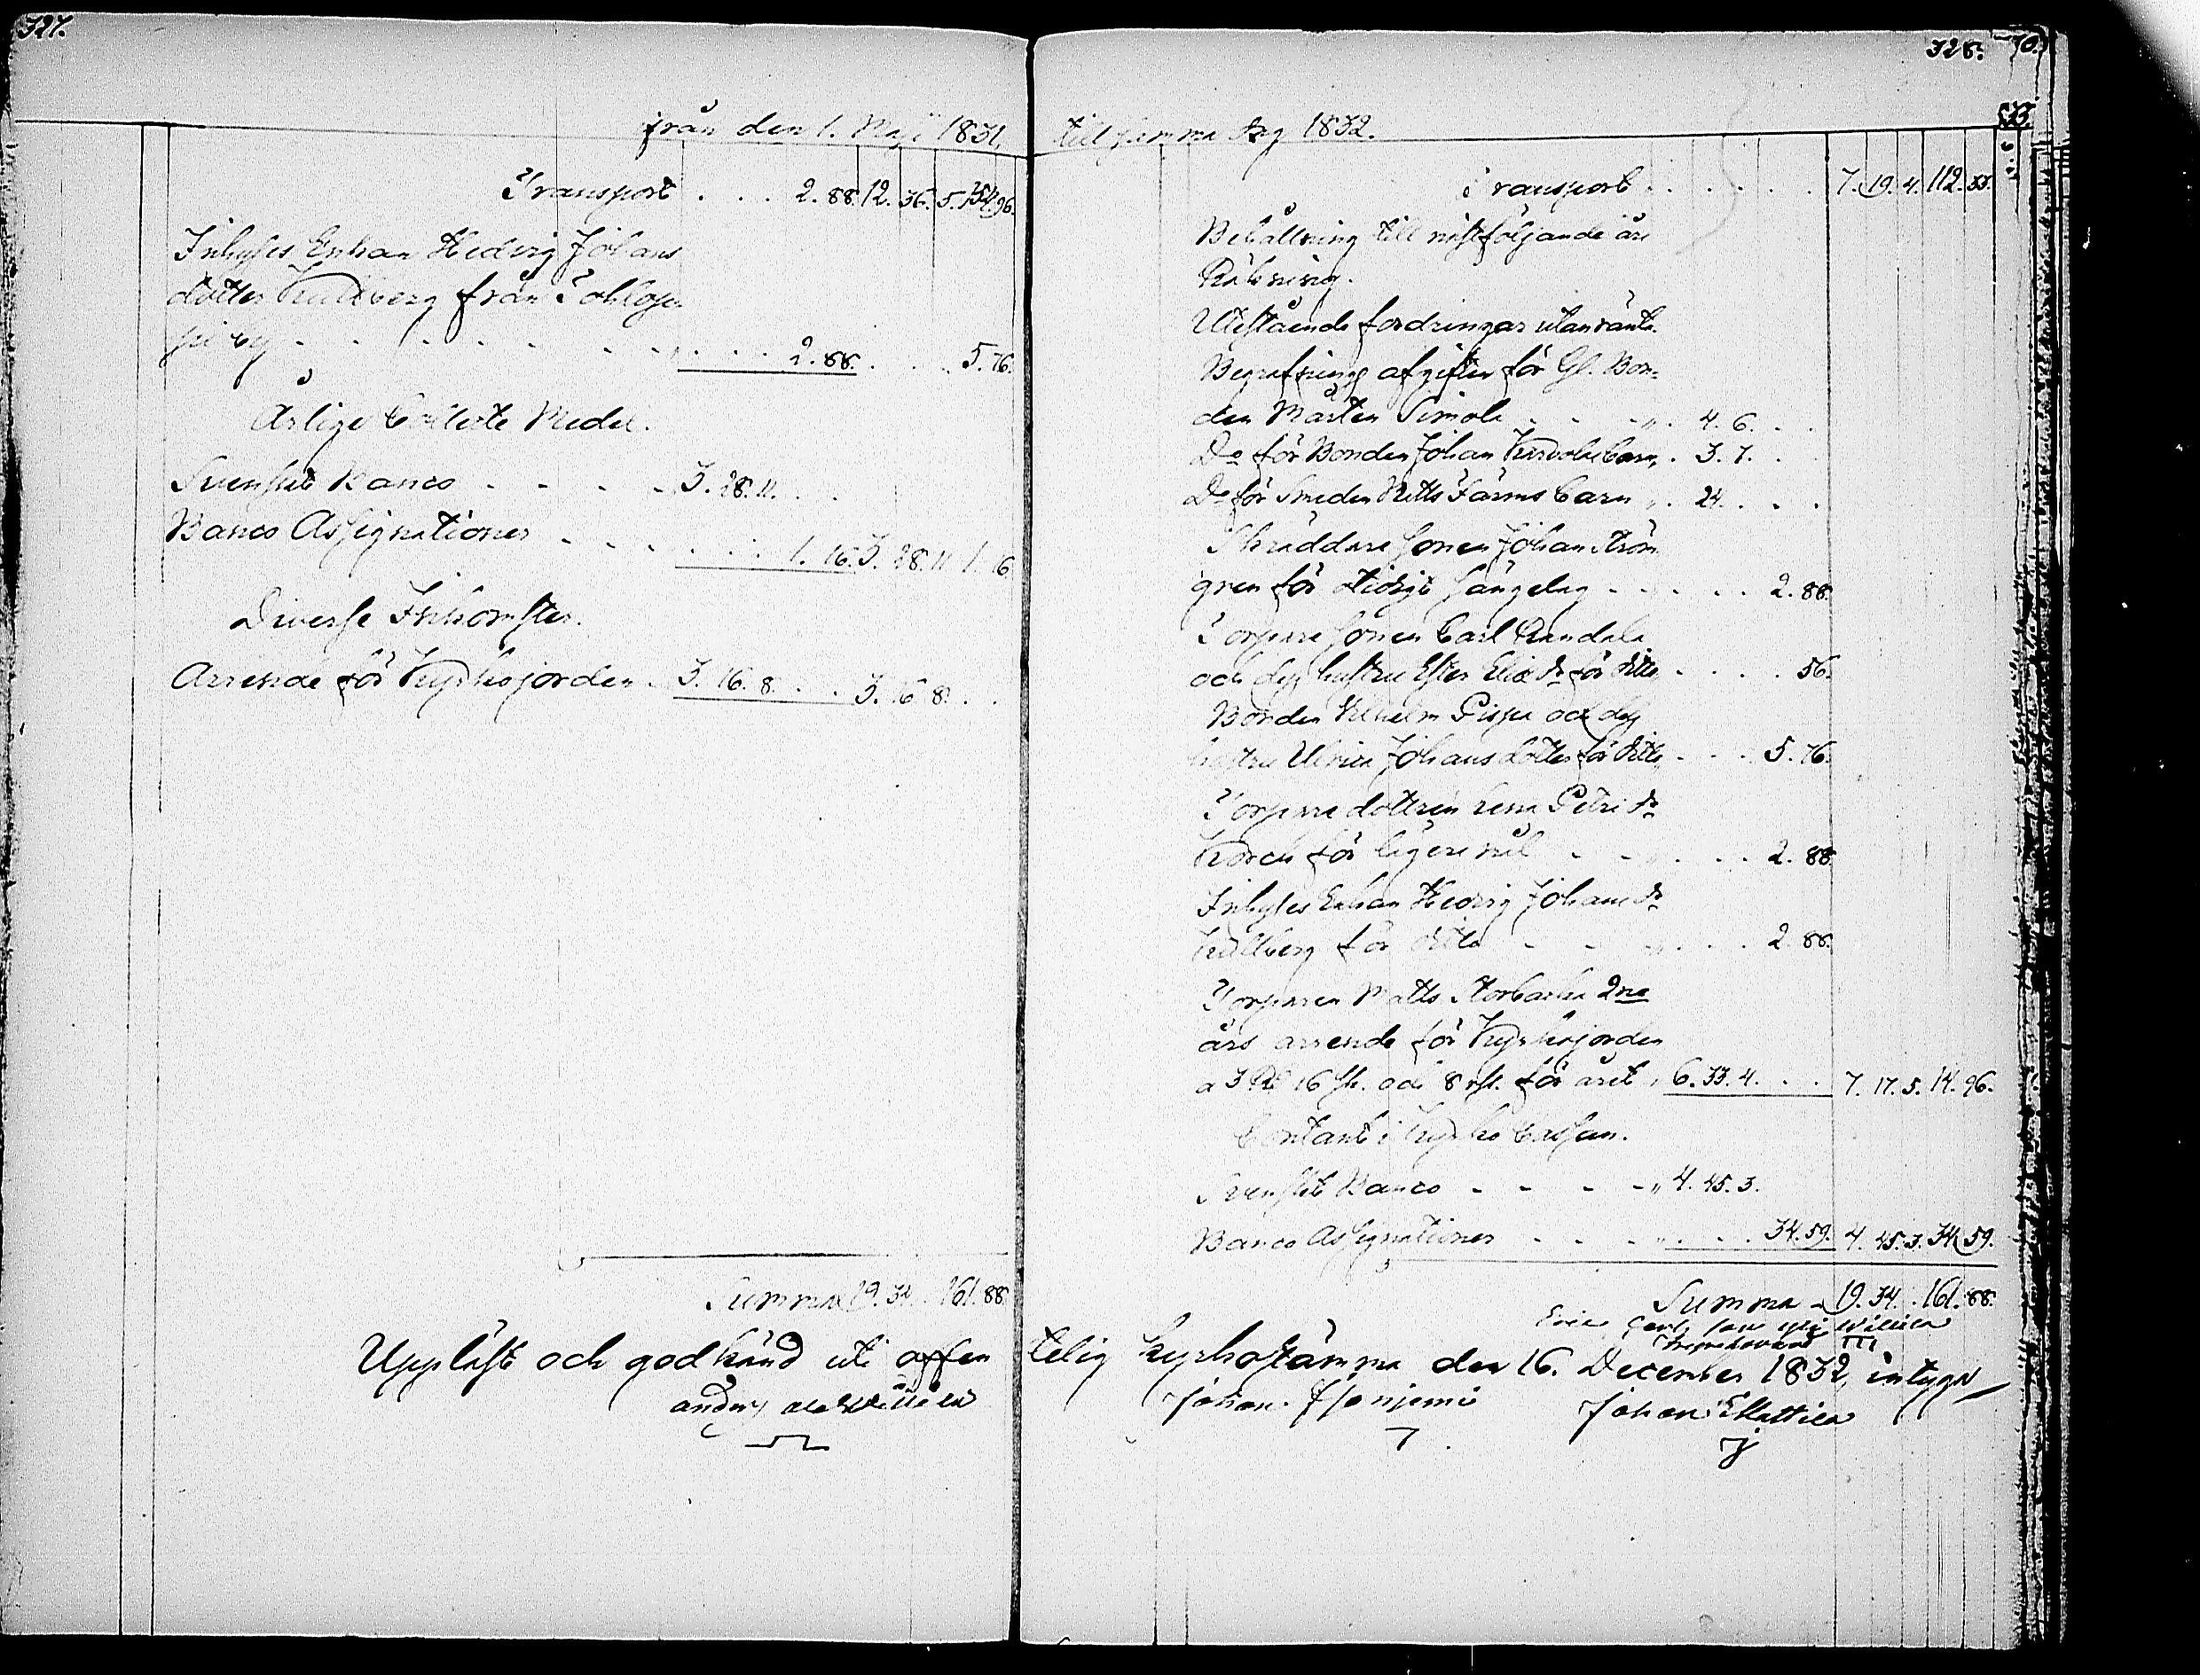 327.
från den 1. Maji 1831.
Transport . . . 2. 88. 12. 36. 5. 154. 96.
Inhyses Enkan Hedvig Johans
dotter Kullberg från
by - - - - - - 2. 88. . . . 5. 76.
Årlige Collecte Medel.
Svenskt Banco - - - - 3. 28. 11. . .
Banco Assignationer - - - . . . 1. 16. 3. 28. 11 1. 16.
Diverse Inkomster.
Arrende för Kyrkojorden - 3. 16. 8. . . 3. 16 8. . .
Summa 19. 34. . 161. 88.
328.
till samma dag 1832.
Transport . . . . . . 7. 19. 4. 112. 33.
Behållning till nästföljande års
Räkning.
Utestående fordringar utan ränta.
Begrafnings afgifter för Gl. Bon-
den Mårten Simola - - - „ . 4. 6. . .
Do för Bonden Johan barn, . 3. 7. .
Do för Smeden Matts Färms barn „ . 24. . . .
Skräddare sonen Johan Ström
gren för otidigt sängelag - - . . . 2. 88.
Torpare sonen Carl Randala
och dess hustru dr för ditto - . . . 56.
Bonden Vilhelm och dess
hustru Ulrica Johansdotter för ditto - . . 5. 76.
Torpare dottren Lena Petri dr
för lägersmål - - „ . . . 2. 88.
Inhyses Enkan Hedvig Johans dr
Kullberg för ditto - - „ . . . 2. 88.
Torparen Matts 2ne
års arrende för Kyrkojorden
a 3 Rd 16 sk. och 8 rst. för året, 6. 33. 4. . . 7. 17. 5. 14. 96.
Contant i Kyrko Cassan.
Svenskt Banco - - - - „ 4. 45. 3.
Banco Assignationer - - - „ . . . 34. 59. 4. 45. 3. 34. 59.
Summa - 19. 34. . 161. 88.
Uppläst och godkänd uti offen telig Kyrkostämma den 16. December 1832, intyga
anders Johan Johan Mattila